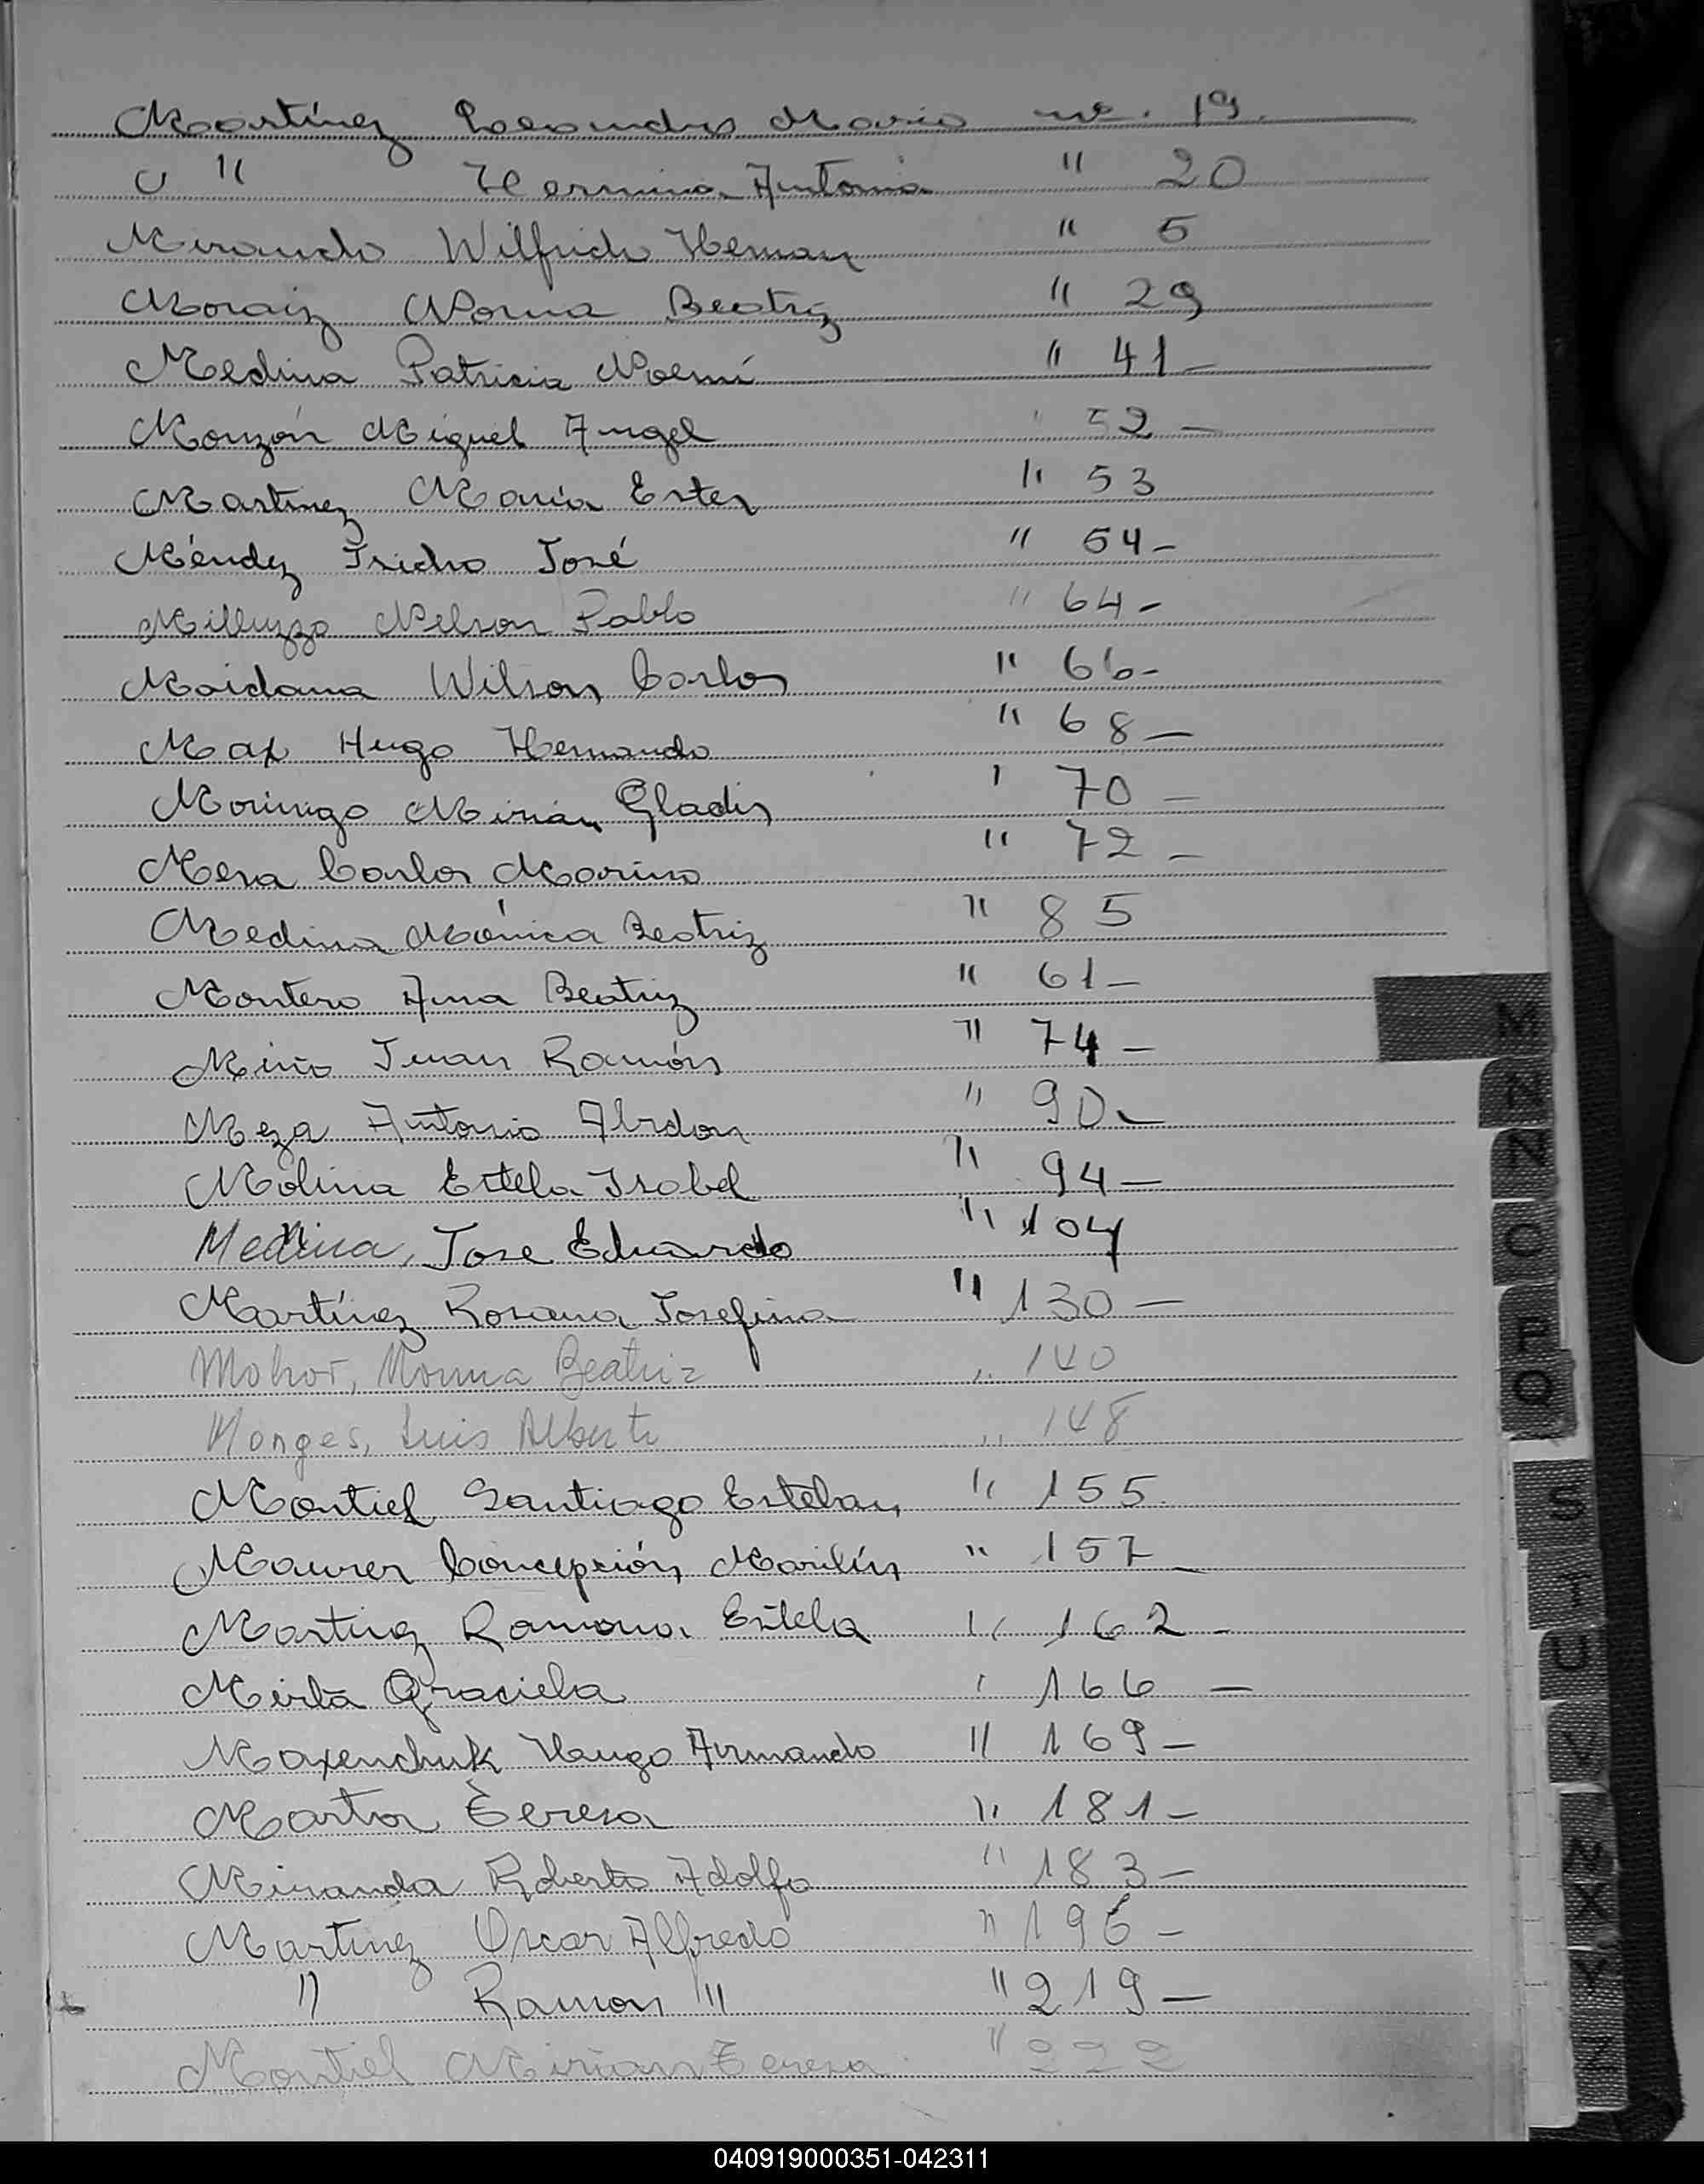 Martínez Leandro Mario nº. 19.
" " Herminia Antonia " 20
Miranda Wilfrido Hernan " 5
Moraiz Norma Beatriz " 29
Medina Patricia Noemí " 41-
Monzón Miguel Angel " 52-
Martinez María Ester " 53
Méndez Isidro José " 54-
Milluzzo Nelson Pablo " 64-
Maidana Wilson Carlos " 66-
Max Hugo Hernando " 68-
Moringo Mirian Gladis " 70-
Mesa Carlos Marino " 72-
Medina Mónica Beatriz " 85
Montero Ana Beatriz " 61-
Miño Juan Ramón " 74-
Meza Antonio Abdon " 90-
Molina Estela Isabel " 94-
Medina, Jose Eduardo " 104
Martínez Rosana Josefina " 130-
Mohor, Norma Beatriz " 140
Monges, Luis Alberto " 148
Montiel Santiago Esteban " 155.
Maurer Concepción Marilín " 157-
Martinez Ramona Estela " 162-
Mirta Graciela " 166-
Maxenchuk Hugo Armando " 169-
Marta Teresa " 181-
Miranda Roberto Adolfo " 183-
Martinez Oscar Alfredo " 196-
" Ramon " " 219-
Montiel Mirian Teresa " 222
M
N
Ñ
O
P
Q
S
T
U
V
X
Y
Z
040919000351-042311